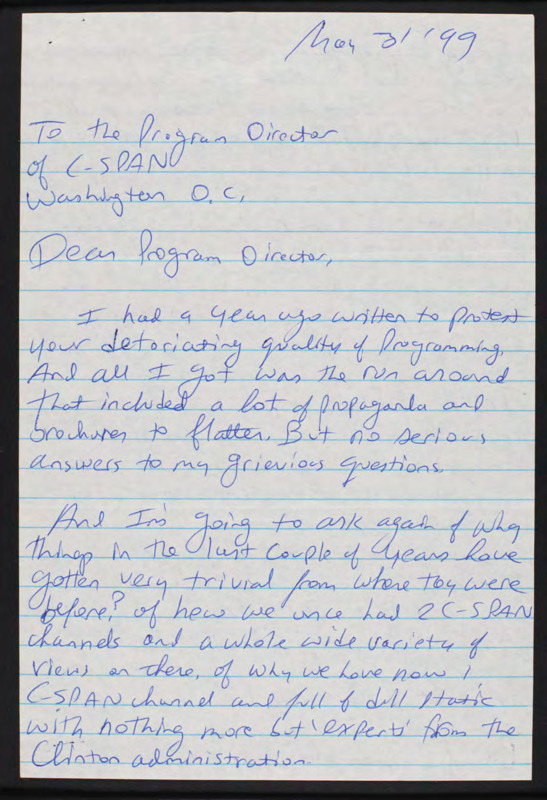 May 31 '99
To the Program Director
of C-SPAN
Washington D.C.
Dear Program Director,
I had a year ago written to protest
your detoriating quality of Programming.
And all I got was the run around
that included a lot of propaganda and
brochures to flatter. But no serious
answers to my grievious questions.
And I'm going to ask again of why
things in the last couple of years have
gotten very trivial from where they were
before? of how we once had 2 C-SPAN
channels and a whole wide variety of
views on there, of why we have now 1
C-SPAN channel and full of dull static
with nothing more but 'experts' from the
Clinton administration.